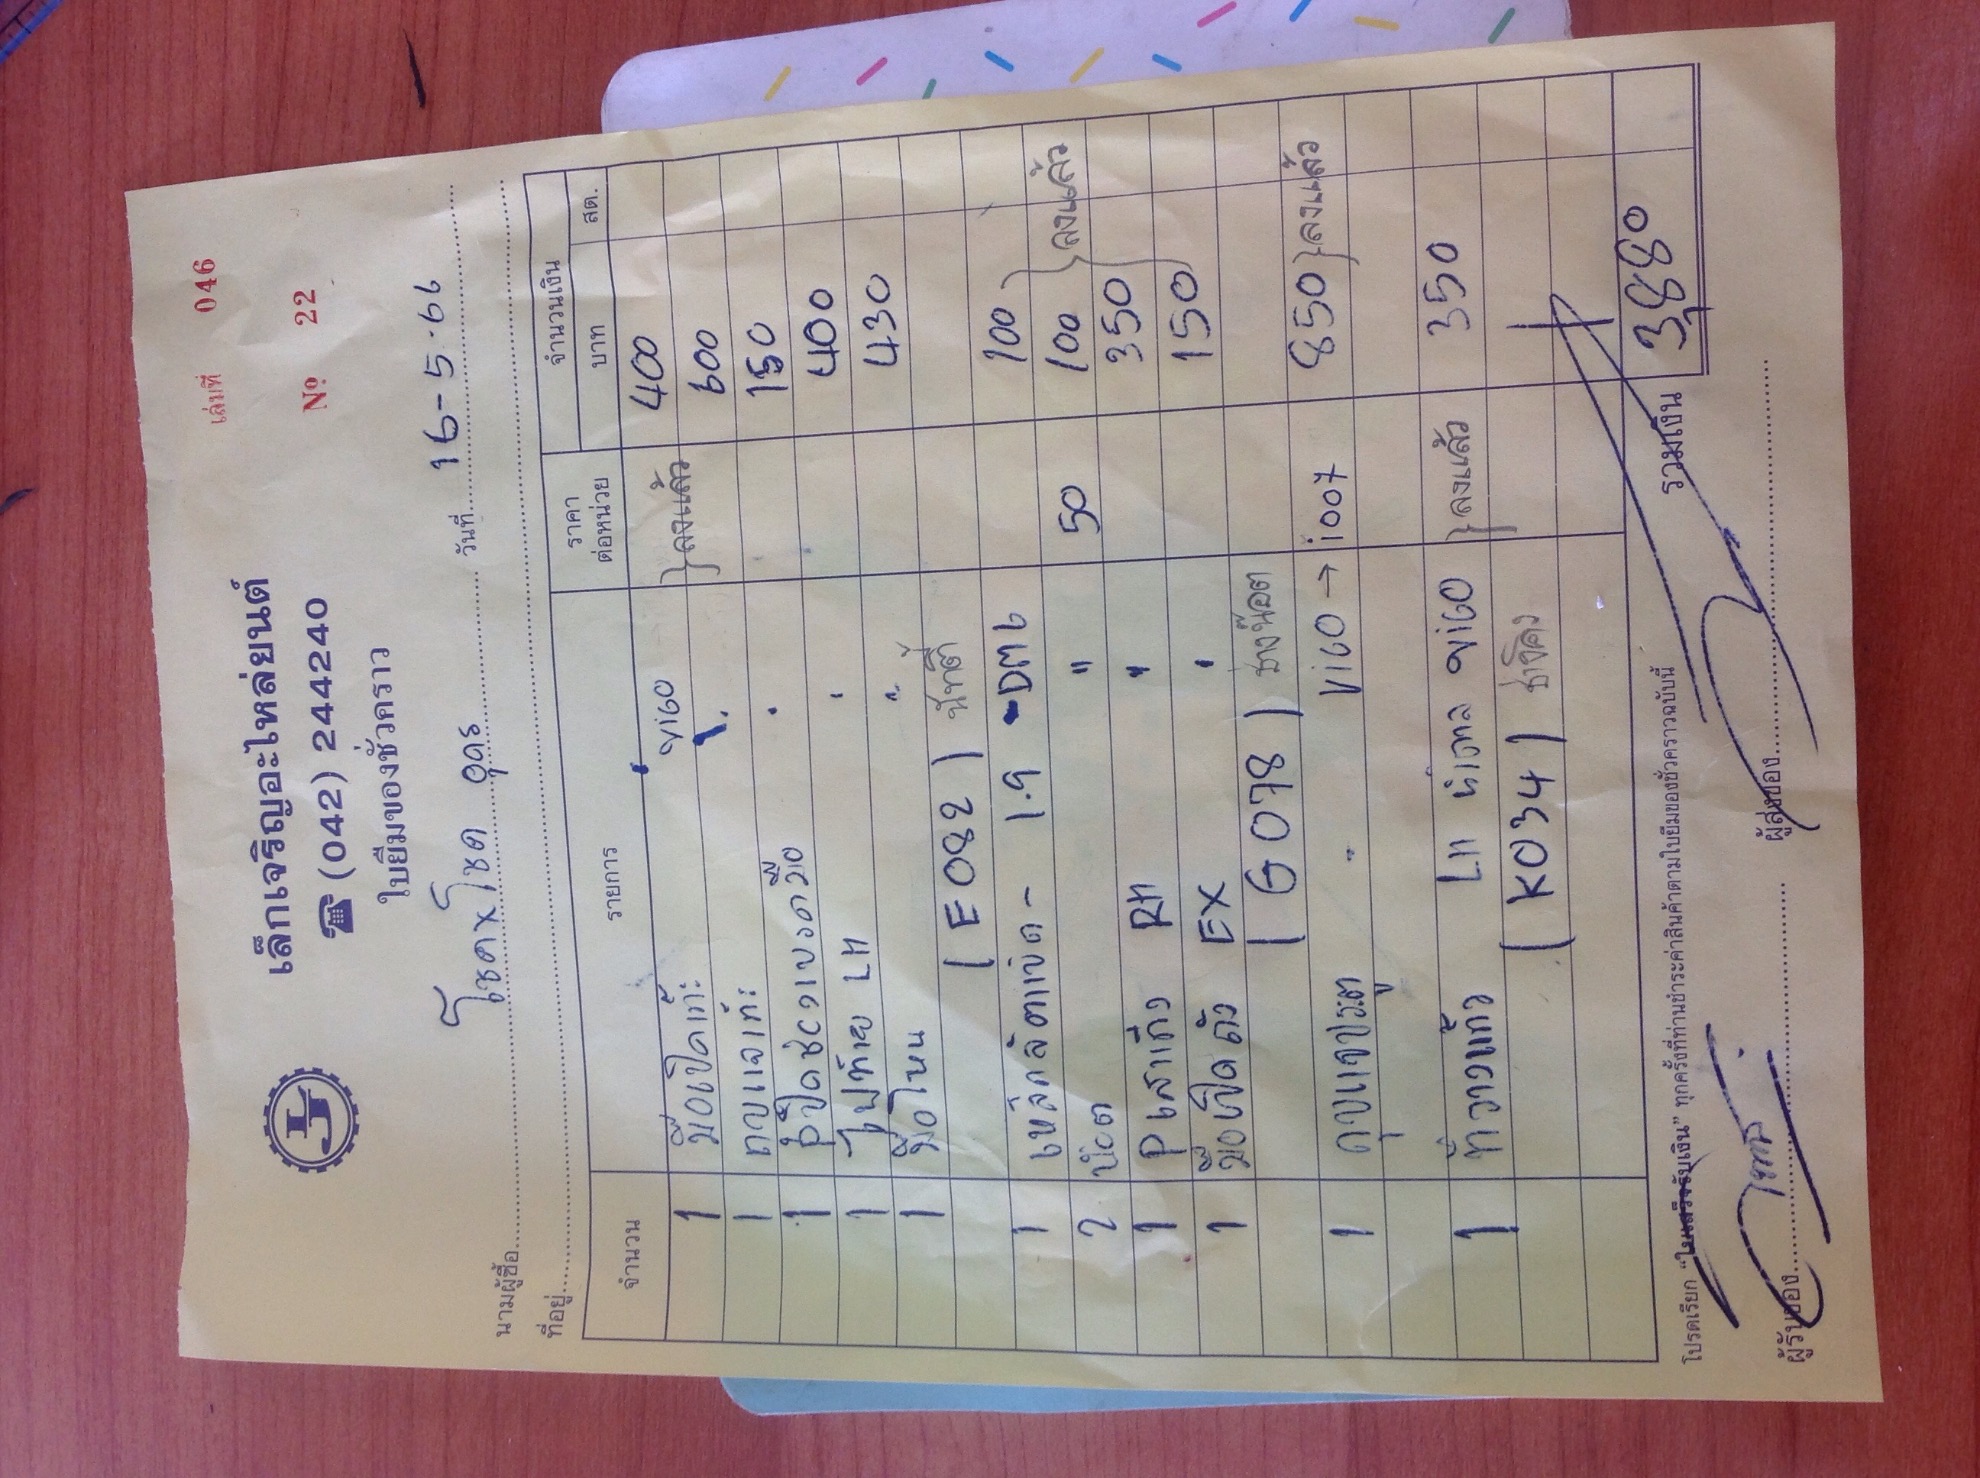 เล่มที่ 046
เล็กเจริญอะไหล่ยนต์
☎ (042) 244240
Nº 22
ใบยืมของชั่วคราว
นามผู้ซื้อ โชคxโชค อุดร วันที่ 16-5-66
ที่อยู่
จำนวน รายการ ราคาต่อหน่วย จำนวนเงิน
บาท สต.
1 มือเปิดเก๊ะ VIGO } ลงแล้ว 400
1 " 600
1 " 150
1 ไฟท้าย LH " 400
1 มือโหน " 430
( E082 )
1 1.9 DMb 100
2 น๊อต " 50 100 } ลงแล้ว
1 RH " 350
1 มือเปิดตัว EX " 150
( G078 ) ช่างน๊อต
1 VIGO → 1007 850 } ลงแล้ว
1 LH VIGO } ลงแล้ว 350
( K034 )
รวมเงิน 3,880
โปรดเรียก “ใบเสร็จรับเงิน” ทุกครั้งที่ท่านชำระค่าสินค้าตามใบยืมของชั่วคราวฉบับนี้
ผู้รับของ ผู้ส่งของ